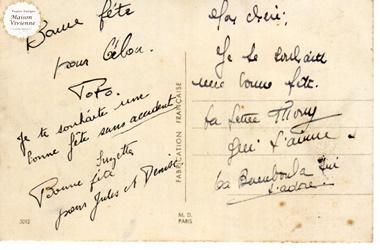 Papiers Antiques
Maison
Vivienne
Bonne fête
pour Célou.
Toto.
Je te souhaite une
bonne fête sans accident
Suzette
Bonne fête
pour Jules et Denise
3012
FABRICATION FRANÇAISE
M. D.
PARIS
Mon chéri,
Je te souhaite
une bonne fête.
ta petite Thony
qui t'aime
ta Bamboula qui
t'adore!